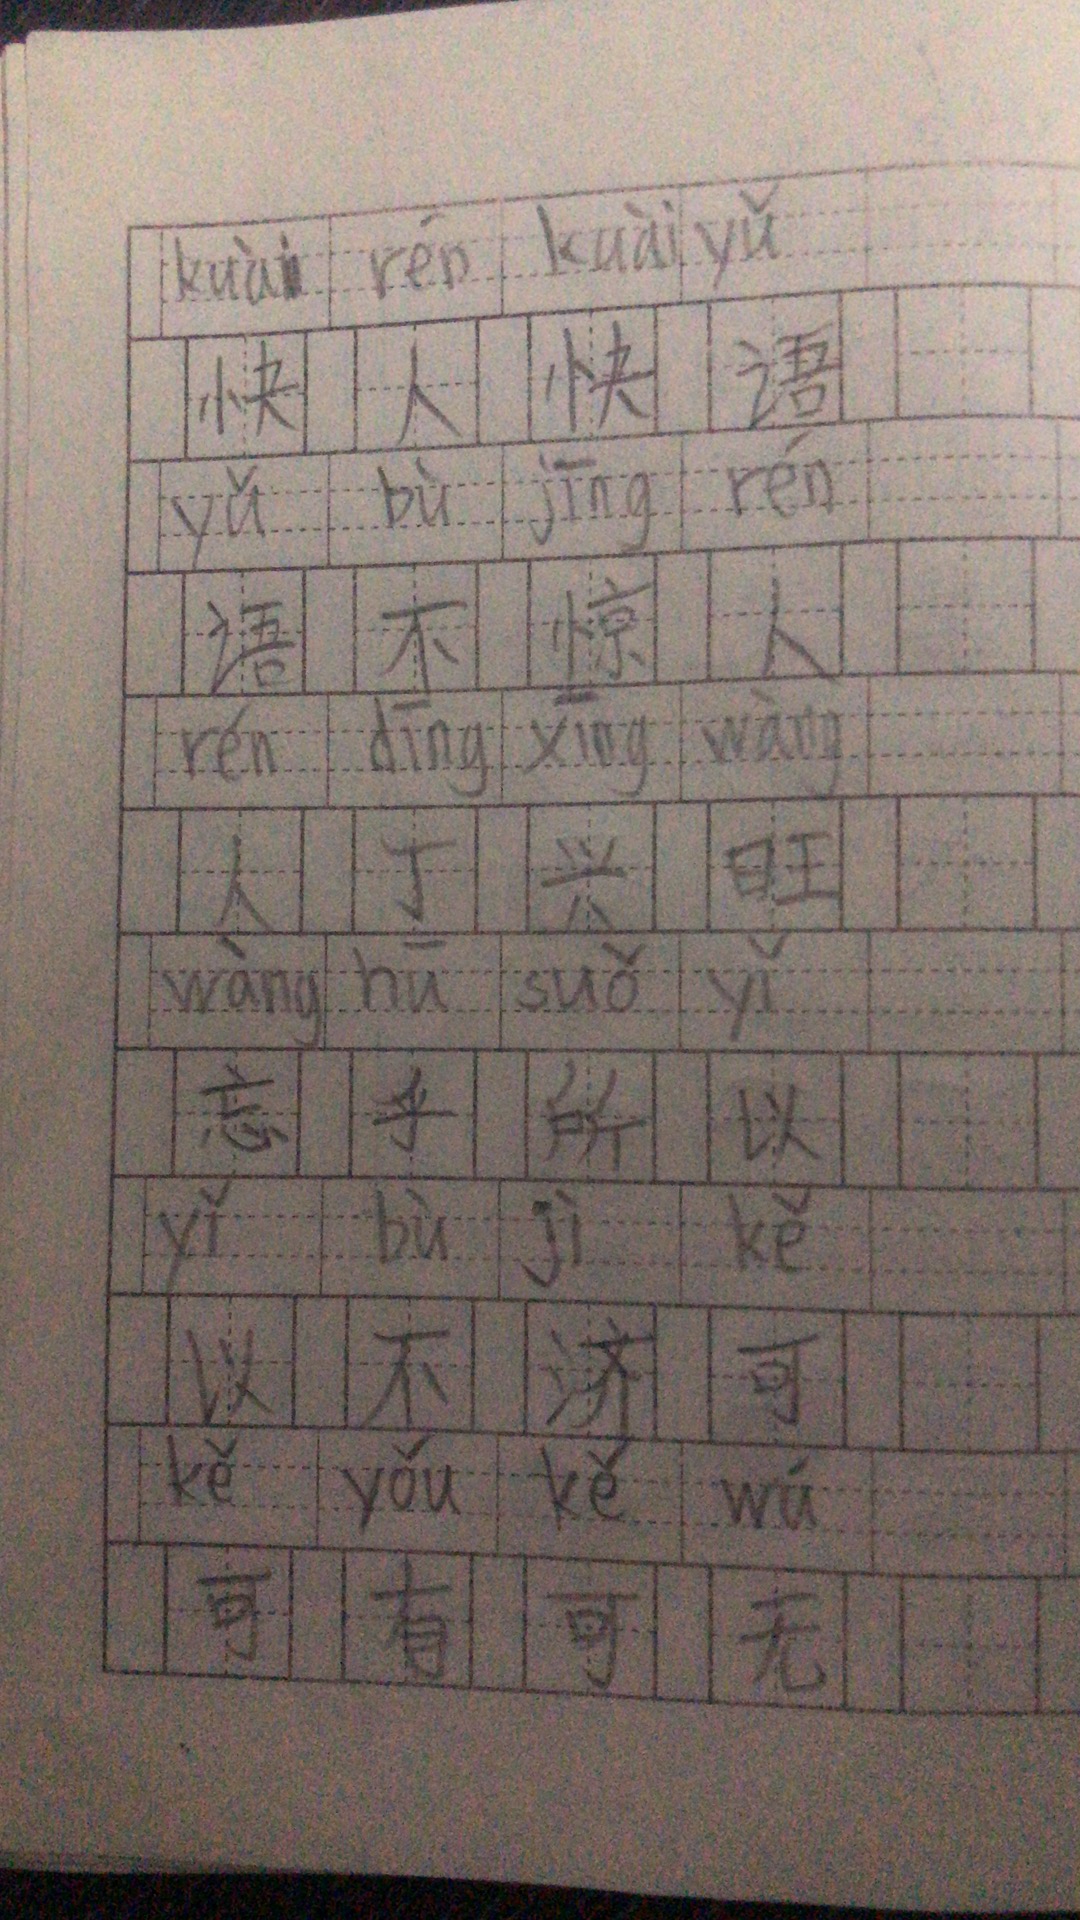 kuài rén kuài yǔ
快人快语
yǔ bù jīng rén
语不惊人
rén dīng xīng wàng
人丁兴旺
wàng hū suǒ yǐ
忘乎所以
yǐ bù jì kě
以不济可
kě yǒu kě wú
可有可无